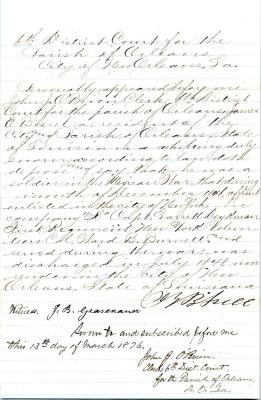 6th District Court for the
Parish of Orleans
City of New Orleans, La.
Personally appeared before me
John J. O'Brien Clerk 6th District
Court for the parish of Orleans James
a resident of the
City and Parish of Orleans, State
of Louisiana who being duly
sworn according to law, doth
depose and say that he was a
soldier in the Mexican War that during
month of December 1846 he
enlisted in the city of New York in
company "D" Capt. Garrett Dyckman
First Regiment New York Volun-
teers Col. Ward B. Burnett and
served during the war, was
discharged in July 1848 now
resides in the City of New
Orleans, State of Louisiana
Witness. J. B.
Sworn to and subscribed before me
this 13th day of March 1876,
John J. O'Brien
Clerk 6th Dist. Court
for the Parish of Orleans
N.O. La.